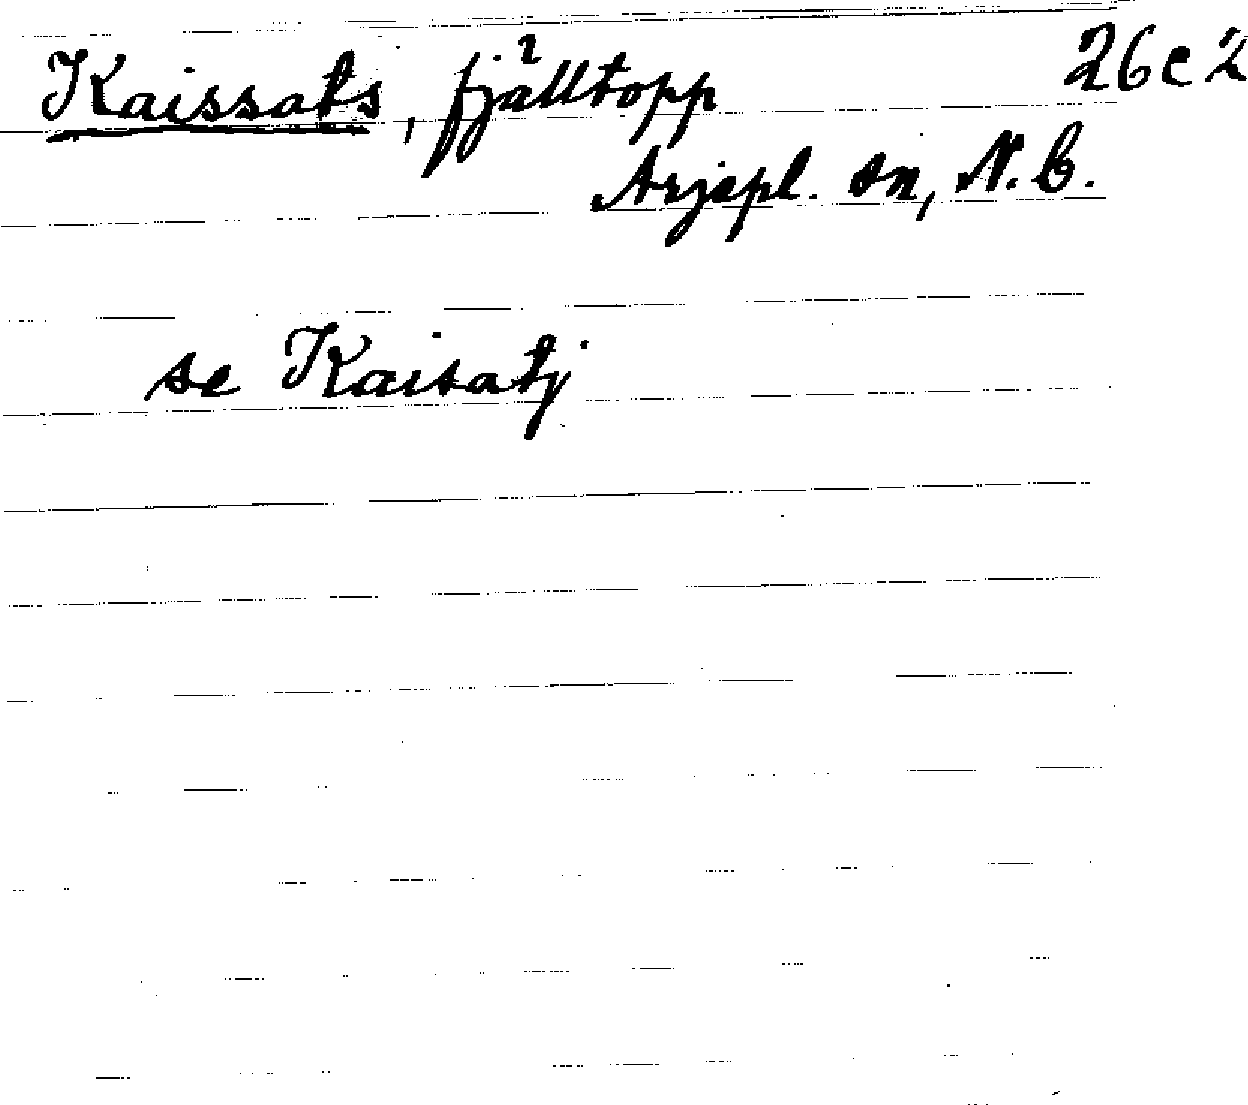 Kaissats, fjälltopp 26 c 2
Arjepl. sn, N.b.
se Kaisatj